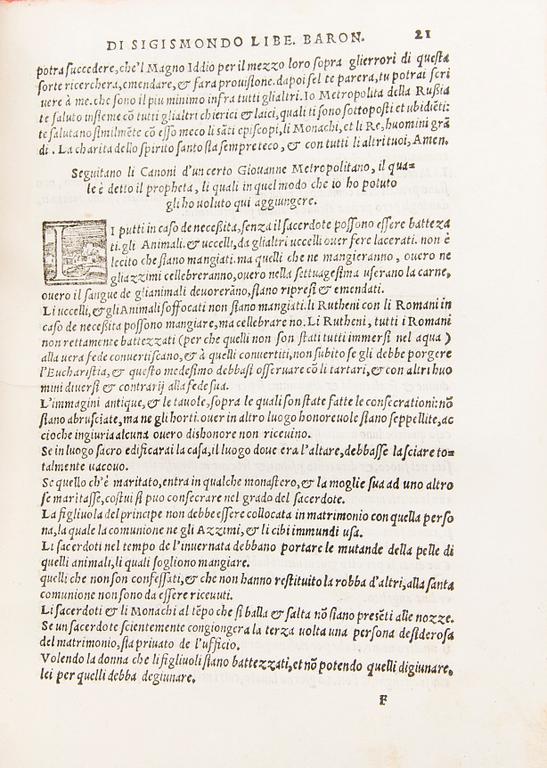 DI SIGISMONDO LIBE. BARON. 21
potra succedere, che'l Magno Iddio per il mezzo loro sopra gl'errori di questa
sorte ricerchera, emendare, & fara provisione. da poi se l te parera, tu potrai scri
vere à me. che sono il piu minimo infra tutti gl'altri. Io Metropolita della Rußia
te saluto insieme cō tutti gl'altri chierici & laici, quali ti sono sottoposti et ubidiēti:
te salutano similmēte cō esso meco li sāti episcopi, li Monachi, et li Re, huomini grā
di. La charita dello spirito santo sta sempre teco, & con tutti li altri tuoi, Amen.
Seguitano li Canoni d'un certo Giouanne Metropolitano, il qua=
le è detto il propheta, li quali in quel modo che io ho potuto
gli ho uoluto qui aggiungere.
LI putti in caso de neceßita, senza il sacerdote poſſono eſſere batteza
ti. gli Animali. & uccelli, da gli altri uccelli ouer fere lacerati. non è
lecito che siano mangiati. ma quelli che ne mangieranno, ouero ne
gli azzimi cellebreranno, ouero nella settuagesima userano la carne,
ouero il sangue de gli animali deuorerāno, siano ripresi & emendati.
Li uccelli, & gli Animali soffocati non siano mangiati. li Rutheni con li Romani in
caso de neceßita poſſono mangiare, ma cellebrare no. Li Rutheni, tutti i Romani
non rettamente battezzati (per che quelli non son stati tutti immersi nel aqua)
alla uera fede conuertiscano, & à quelli conuertiti, non subito se gli debbe porgere
l'Eucharistia, & questo medesimo debbasi osseruare cō li tartari, & con altri huo
mini diuersi & contrarij alla fede sua.
L'immagini antique, & le tauole, sopra le quali son state fatte le consecrationi: nō
siano abrusciate, ma ne gli horti. ouer in altro luogo honoreuole siano seppellite, ac
cioche ingiuria alcuna ouero dishonore non riceuino.
Se in luogo sacro edificarai la casa, il luogo doue era l'altare, debbaſſe lasciare to=
talmente uacouo.
Se quello ch'è maritato, entra in qualche monastero, & la moglie sua ad uno altro
se maritaſſe, costui si puo consecrare nel grado del sacerdote.
La figliuola del principe non debbe eſſere collocata in matrimonio con quella perso
na, la quale la comunione ne gli Azzimi, & li cibi immundi usa.
Li sacerdoti nel tempo de l'inuernata debbano portare le mutande della pelle di
quelli animali, li quali sogliono mangiare.
quelli che non son confeſſati, & che non hanno restituito la robba d'altri, alla santa
comunione non sono da eſſere riceuuti.
Li sacerdoti & li Monachi al tēpo che si balla & salta nō siano presēti alle nozze.
Se un sacerdote scientemente congiongera la terza uolta una persona desiderosa
del matrimonio, sia priuato de l'ufficio.
Volendo la donna che li figliuoli siano battezzati, et nō potendo quelli digiunare,
lei per quelli debba degiunare.
F